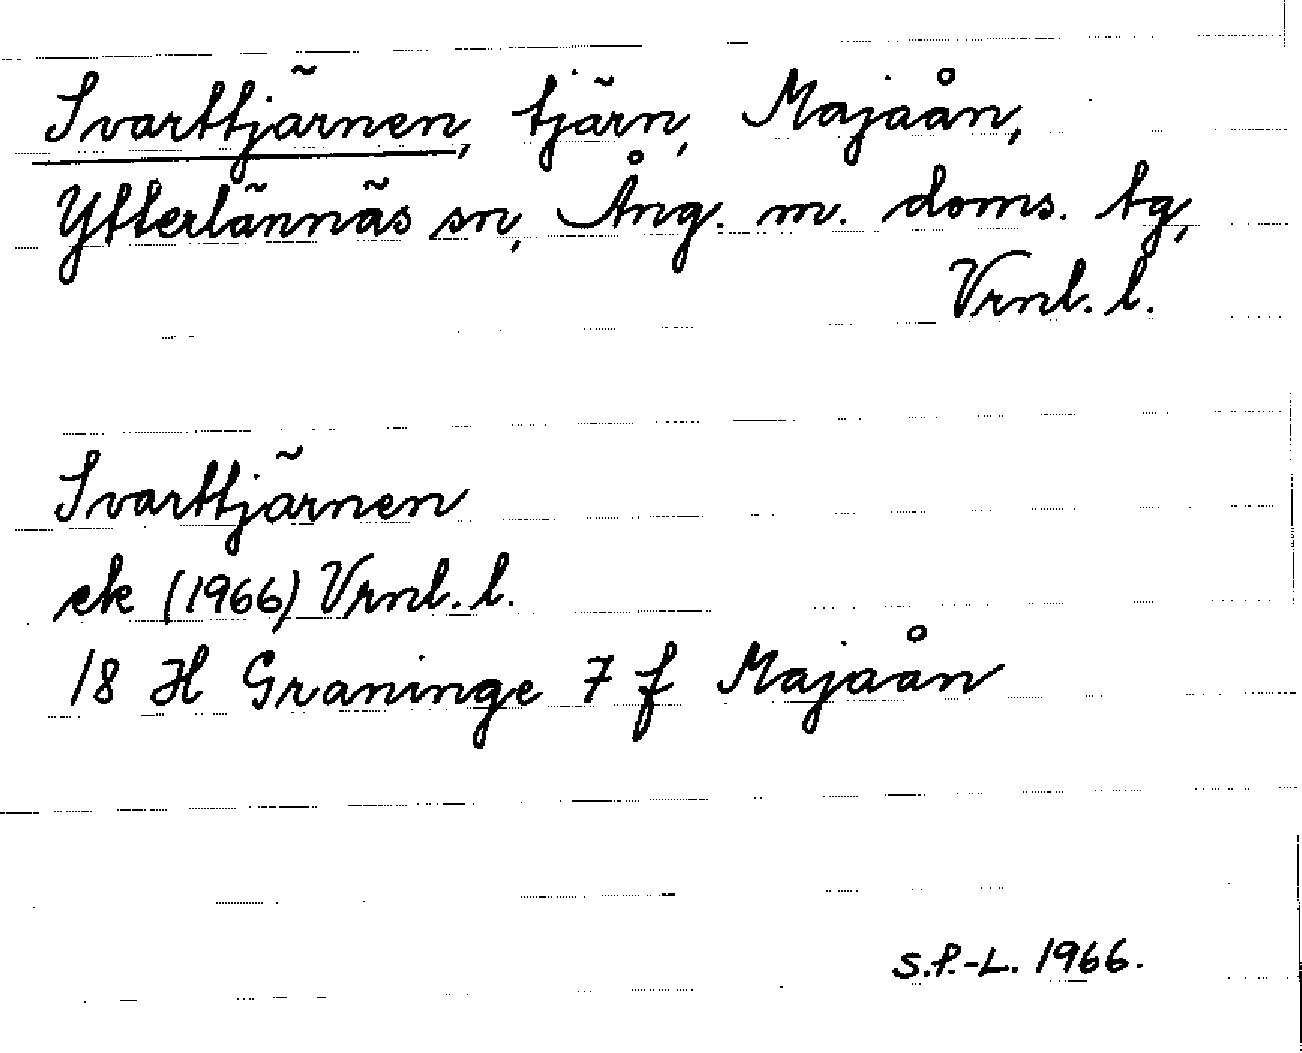 Svarttjärnen, tjärn, Majaån,
Ytterlännäs sn, Ång. m. doms. tg,
Vrnl. l.
Svarttjärnen
ek (1966) Vrnl. l.
18 H Graninge 7 f Majaån
S.P.-L. 1966.